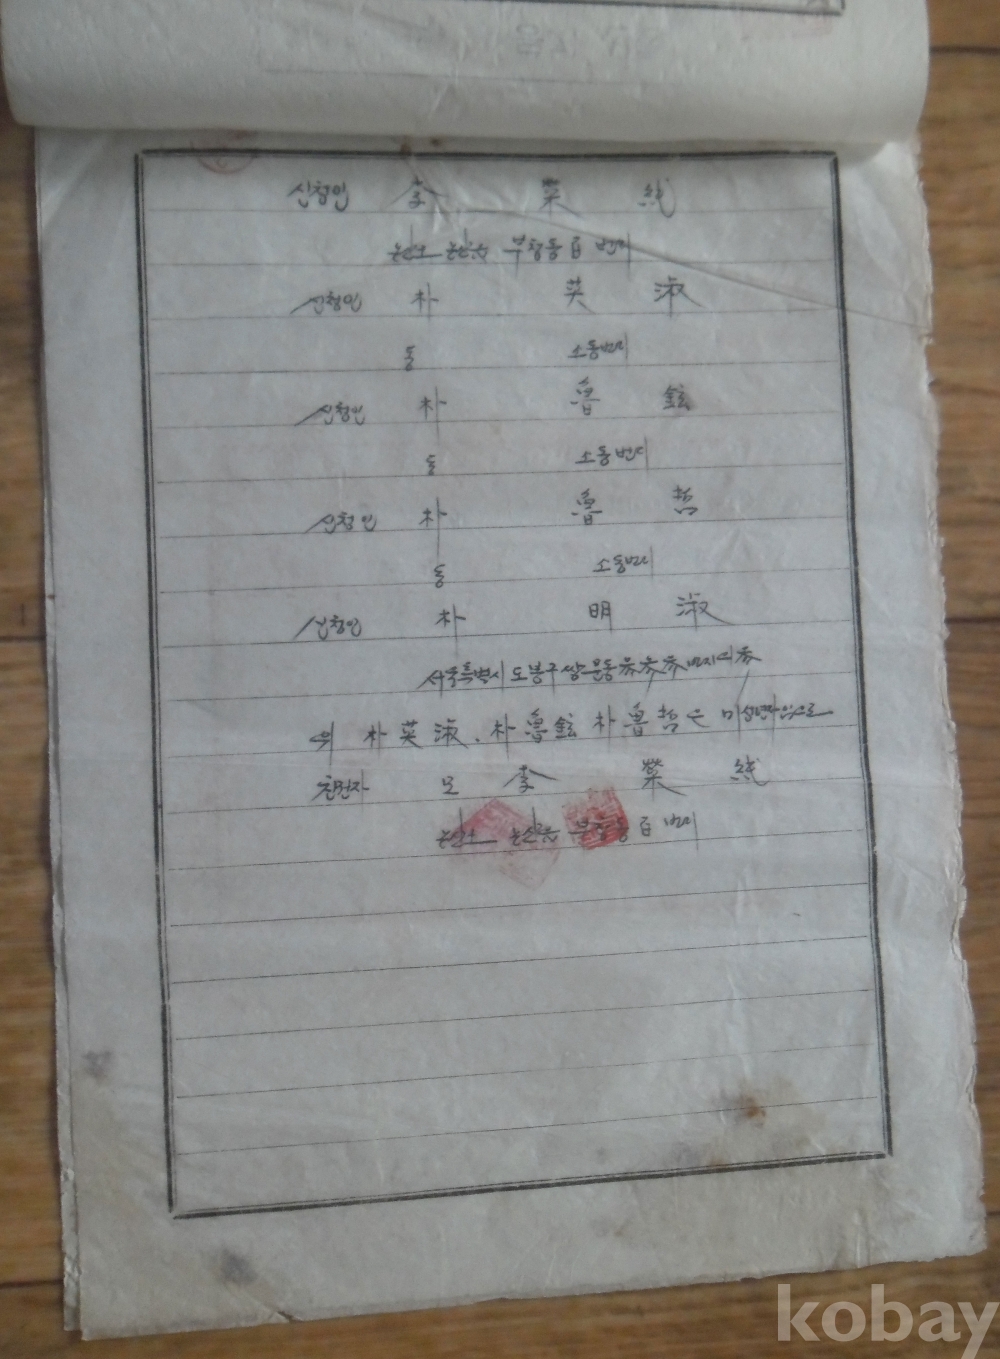 신청인 李 榮 純
논산군 논산읍 부창동 百 번지
신청인 朴 英 淑
동 소동번지
신청인 朴 魯 鉉
동 소동번지
신청인 朴 魯 哲
동 소동번지
신청인 朴 明 淑
서울특별시 도봉구 쌍문동 번지의
위 朴英淑、朴魯鉉 朴魯哲은 미성년자임으로
친권자 모 李 榮 純
논산군 논산읍 부창동 百 번지
kobay